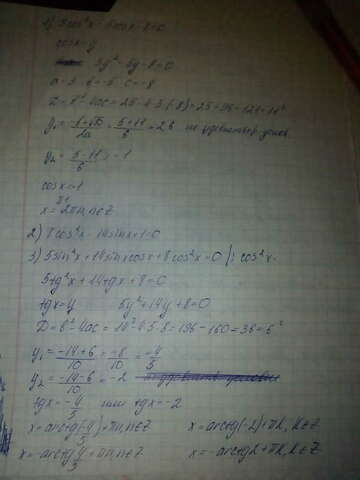 1) 3cos²x - 5cosx - 8 = 0
cosx = y
3y² - 5y - 8 = 0
a = 3 b = -5 c = -8
D = b² - 4ac = 25 - 4·3·(-8) = 25 + 96 = 121 = 11²
y₁ = (-b+√D)/2a = (5+11)/6 = 2
y₂ = (5-11)/6 = -1
cosx = -1
x = 2πn, n∈Z
2) 8cos²x - 14sinx + 1 = 0
3) 5sin²x + 14sinxcosx + 8cos²x = 0 /: cos²x
5tg²x + 14tgx + 8 = 0
tgx = y 5y² + 14y + 8 = 0
D = b² - 4ac = 14² - 4·5·8 = 196 - 160 = 36 = 6²
y₁ = (-14+6)/10 = -8/10 = -4/5
y₂ = (-14-6)/10 = -2
tgx = -4/5 или tgx = -2
x = arctg(-4/5) + πn, n∈Z x = arctg(-2) + πk, k∈Z
x = -arctg 4/5 + πn, n∈Z x = -arctg2 + πk, k∈Z